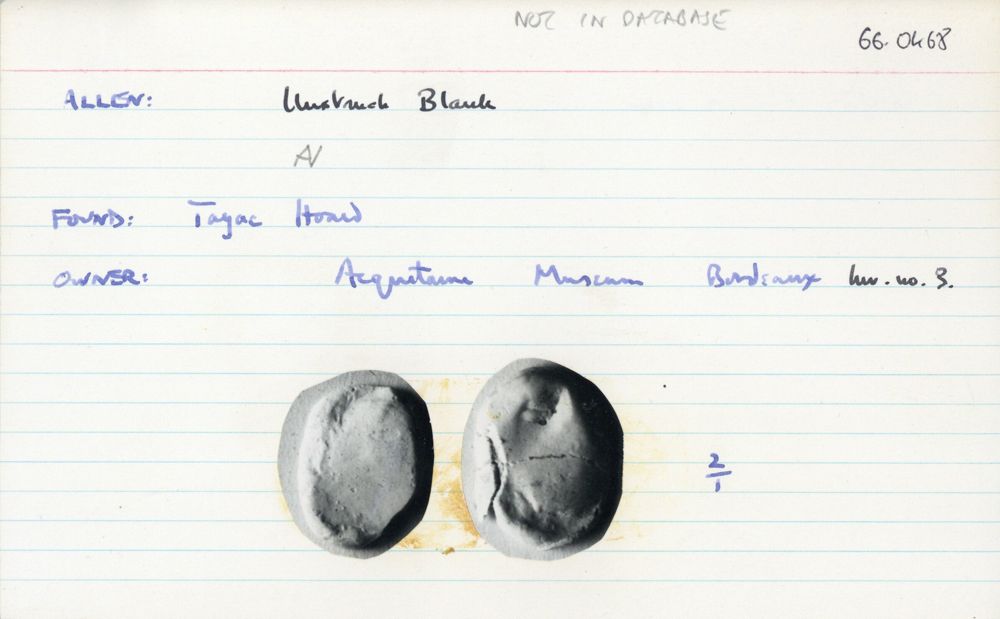 NOT IN DATABASE
66.0468
ALLEN: Unstruck Blank
AV
FOUND: Tayac Hoard
OWNER: Acquitaine Museum Bordeaux Inv. no. 3.
2/1